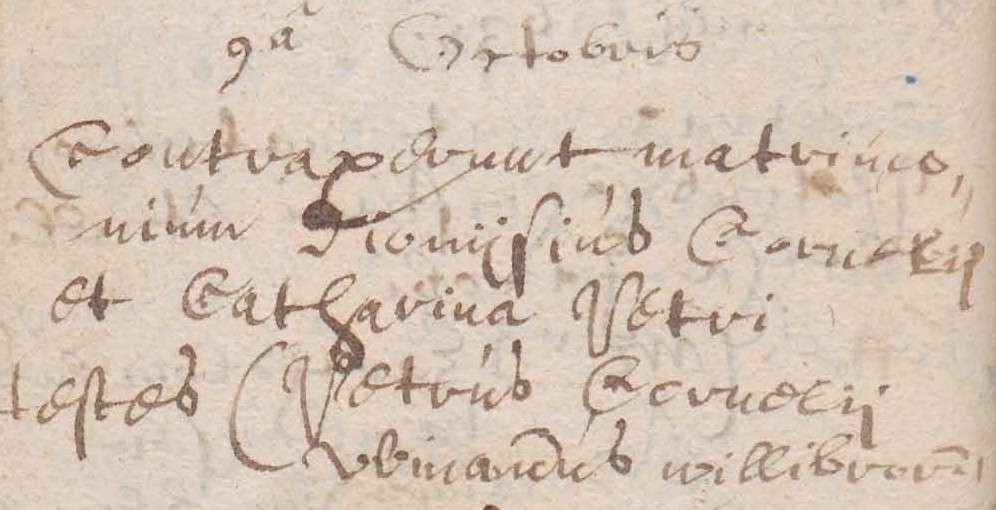 9ª Octobris
Contraxerunt matrimo„
nium Dionijsius Cornelij
et Catharina Petri
testes Petrus Cornelij
willibrordi